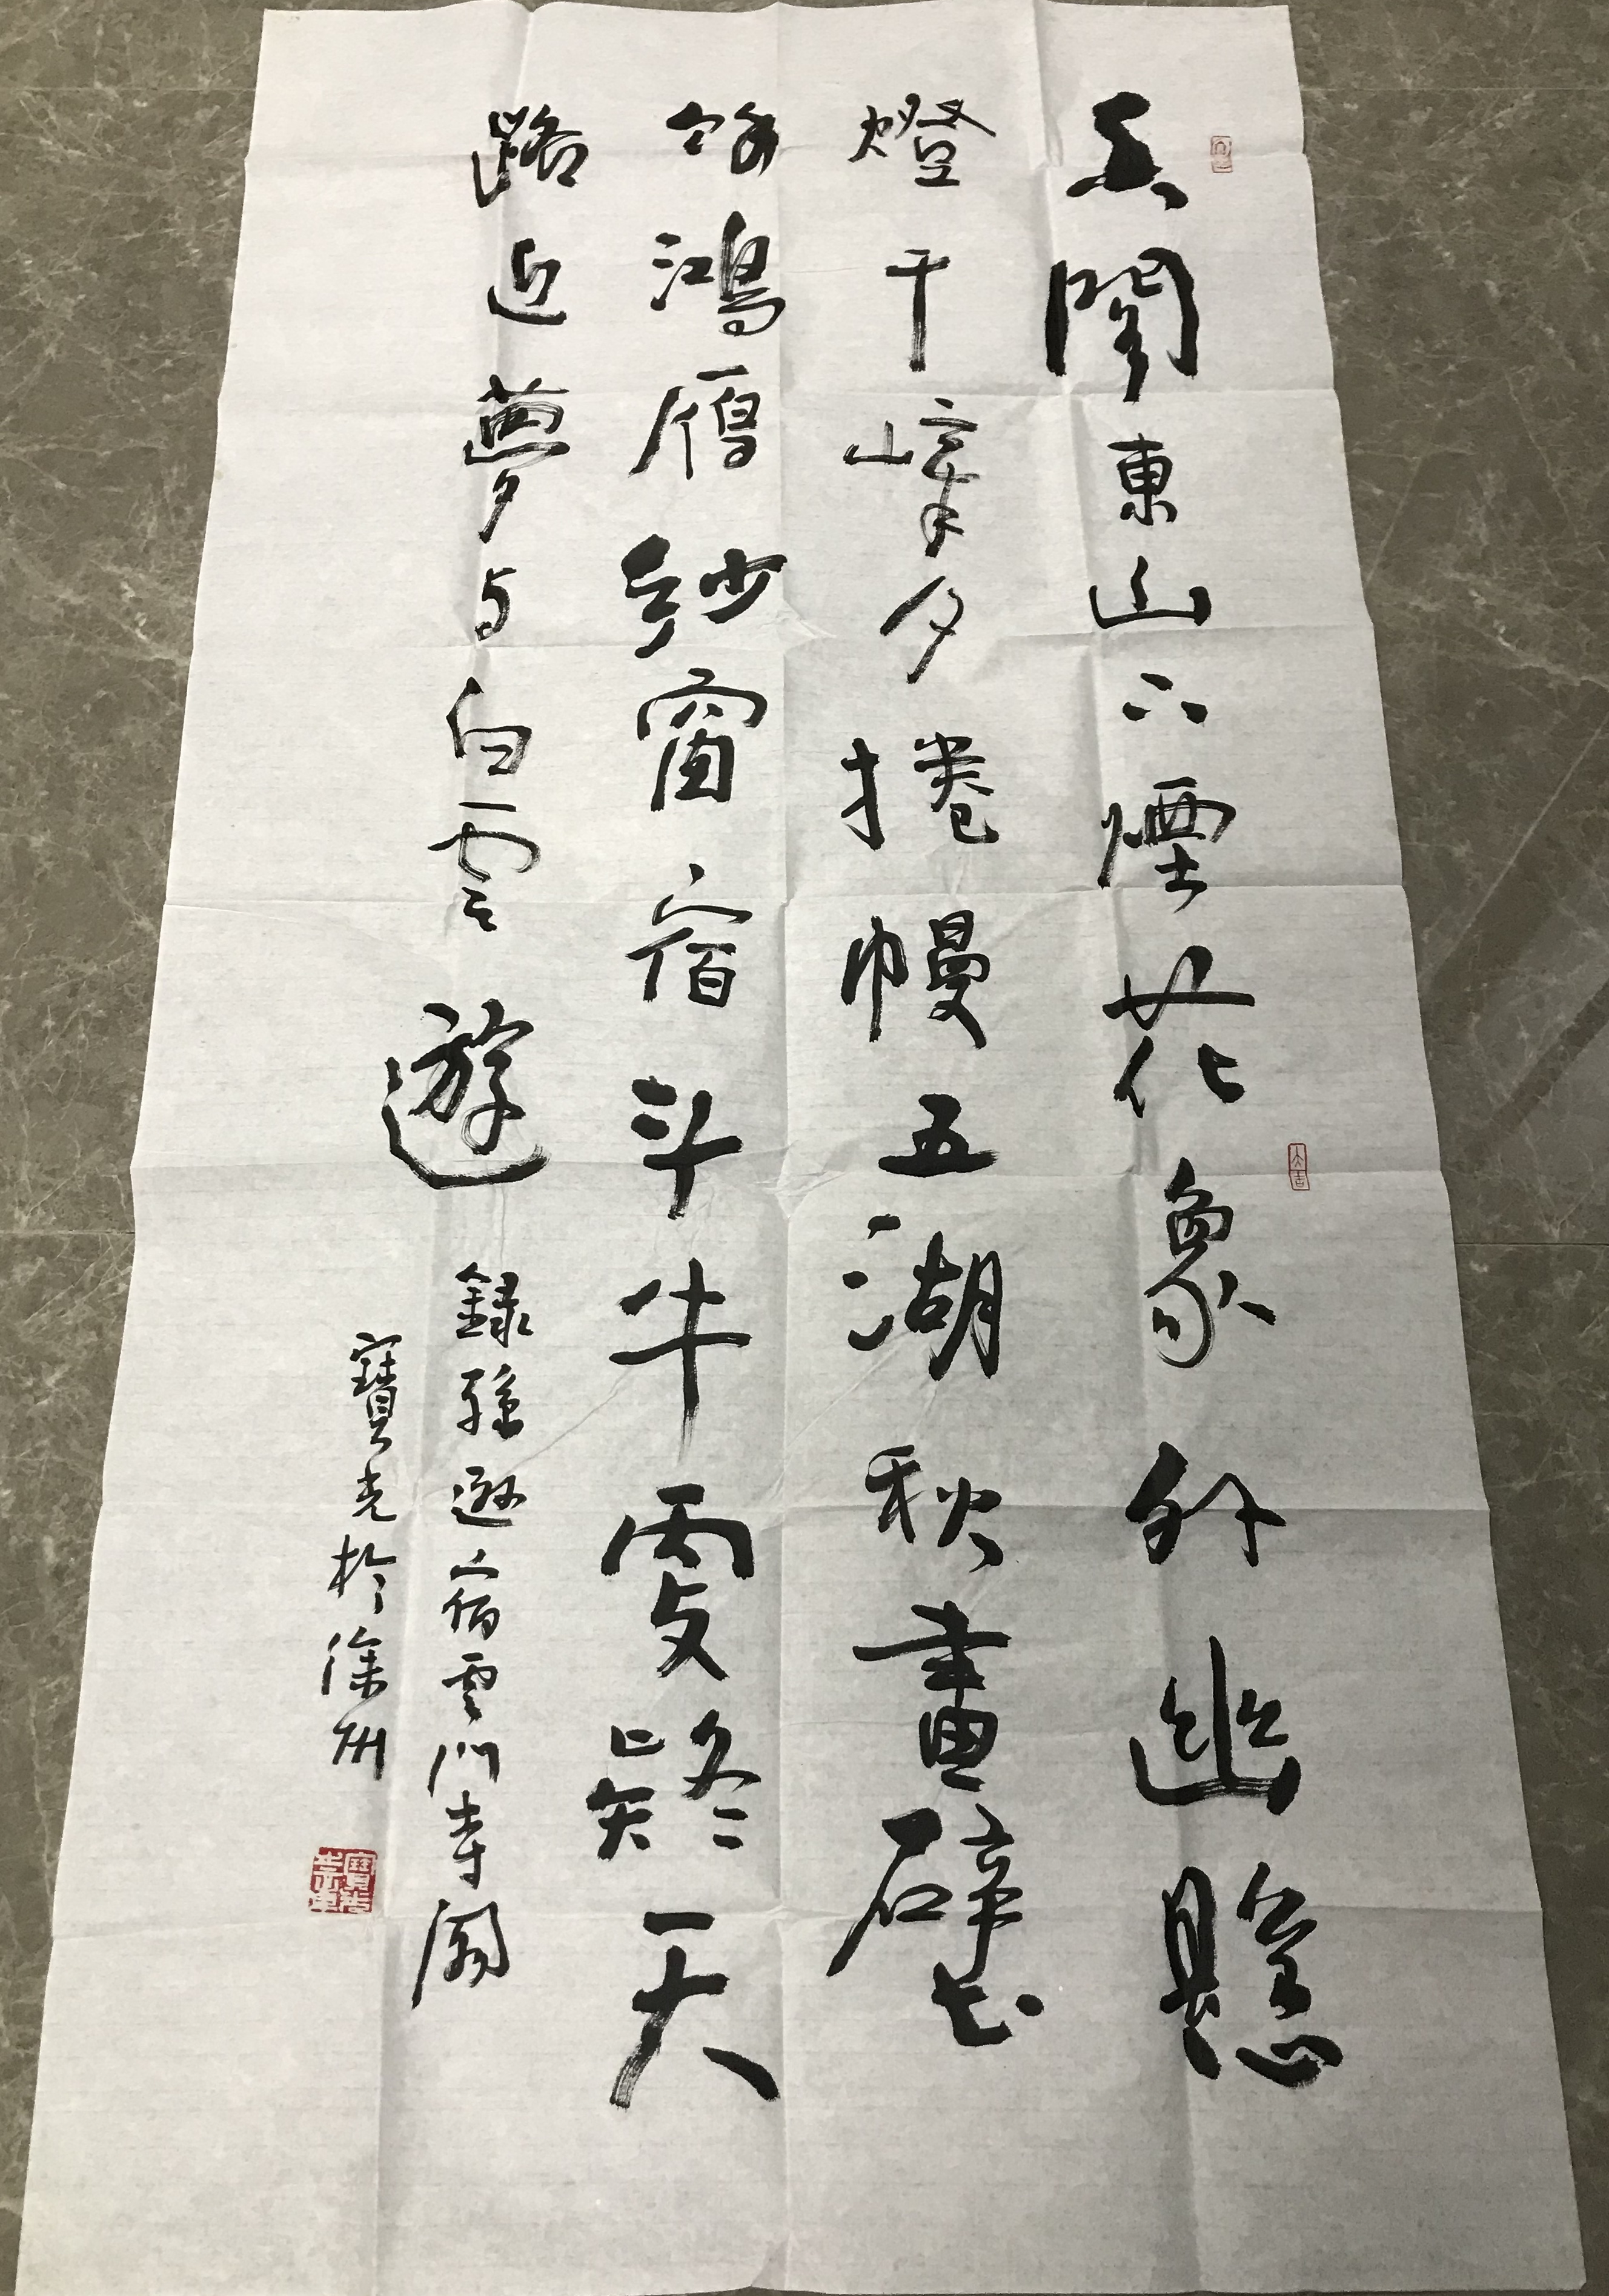 香閣東山下煙花象外幽懸
燈千嶂夕捲幔五湖秋畫壁
餘鴻雁紗窗宿斗牛更疑天
路近夢与白雲遊
録孫逖宿雲門寺閣
寶光於徐州
大吉